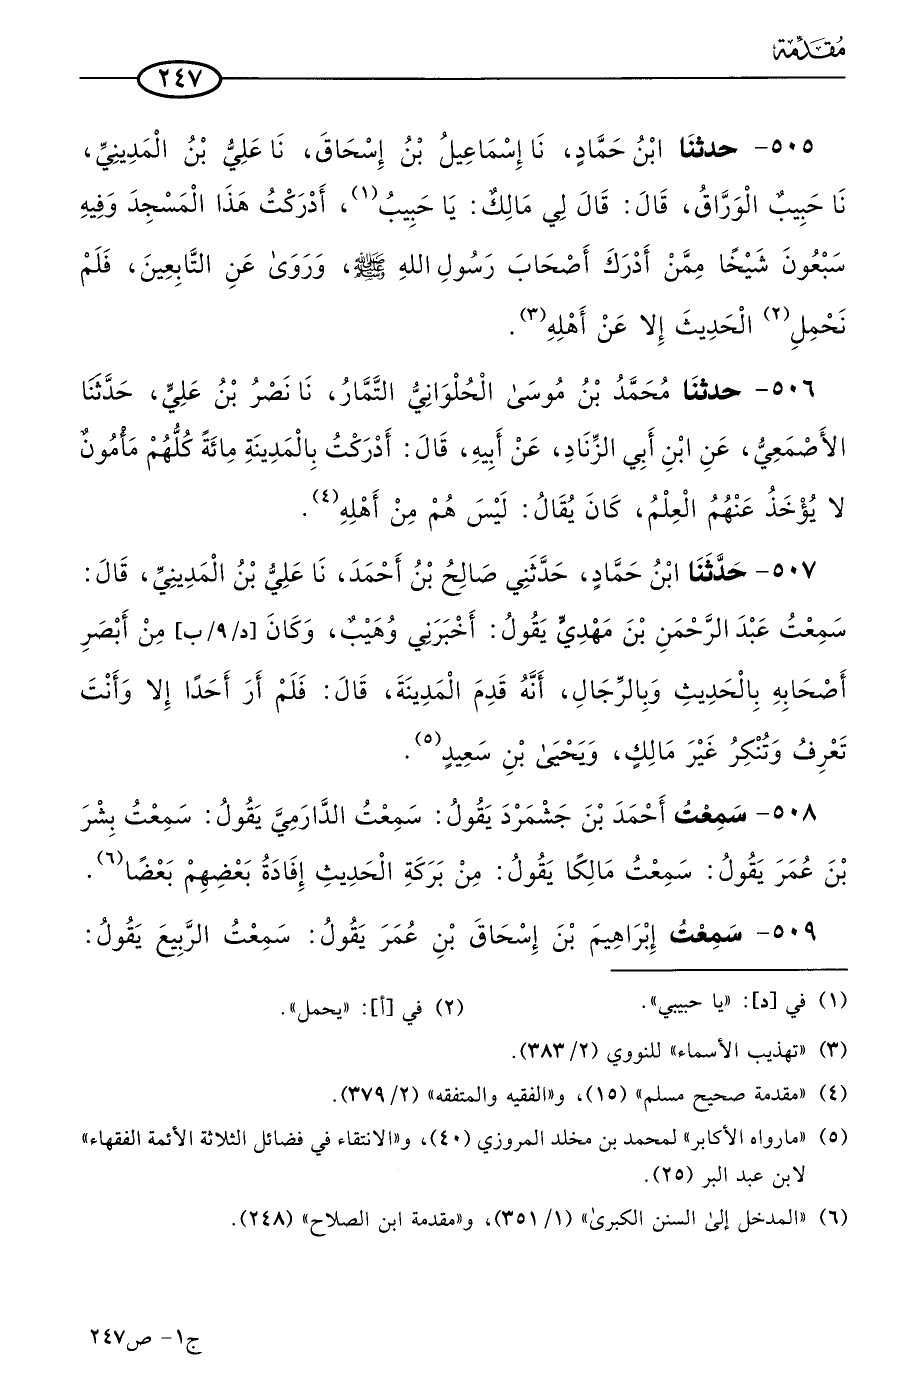 مُقَدِّمَة
٢٤٧
٥٠٥- حدثنَا ابْنُ حَمَّادٍ، نَا إِسْمَاعِيلُ بْنُ إِسْحَاقَ، نَا عَلِيُّ بْنُ الْمَدِينِيِّ،
نَا حَبِيبٌ الْوَرَّاقُ، قَالَ: قَالَ لِي مَالِكٌ: يَا حَبِيبُ(١)، أَدْرَكْتُ هَذَا الْمَسْجِدَ وَفِيهِ
سَبْعُونَ شَيْخًا مِمَّنْ أَدْرَكَ أَصْحَابَ رَسُولِ اللهِ ﷺ، وَرَوَىٰ عَنِ التَّابِعِينَ، فَلَمْ
نَحْمِلِ(٢) الْحَدِيثَ إِلا عَنْ أَهْلِهِ(٣).
٥٠٦- حدثنَا مُحَمَّدُ بْنُ مُوسَىٰ الْحُلْوَانِيُّ التَّمَّارُ، نَا نَصْرُ بْنُ عَلِيٍّ، حَدَّثَنَا
الأَصْمَعِيُّ، عَنِ ابْنِ أَبِي الزِّنَادِ، عَنْ أَبِيهِ، قَالَ: أَدْرَكْتُ بِالْمَدِينَةِ مِائَةً كُلُّهُمْ مَأْمُونٌ
لا يُؤْخَذُ عَنْهُمُ الْعِلْمُ، كَانَ يُقَالُ: لَيْسَ هُمْ مِنْ أَهْلِهِ(٤).
٥٠٧- حَدَّثَنَا ابْنُ حَمَّادٍ، حَدَّثَنِي صَالِحُ بْنُ أَحْمَدَ، نَا عَلِيُّ بْنُ الْمَدِينِيِّ، قَالَ:
سَمِعْتُ عَبْدَ الرَّحْمَنِ بْنَ مَهْدِيٍّ يَقُولُ: أَخْبَرَنِي وُهَيْبٌ، وَكَانَ [د/٩/ب] مِنْ أَبْصَرِ
أَصْحَابِهِ بِالْحَدِيثِ وَبِالرِّجَالِ، أَنَّهُ قَدِمَ الْمَدِينَةَ، قَالَ: فَلَمْ أَرَ أَحَدًا إِلا وَأَنْتَ
تَعْرِفُ وَتُنْكِرُ غَيْرَ مَالِكٍ، وَيَحْيَىٰ بْنِ سَعِيدٍ(٥).
٥٠٨- سَمِعْتُ أَحْمَدَ بْنَ جَشْمَرْدَ يَقُولُ: سَمِعْتُ الدَّارَمِيَّ يَقُولُ: سَمِعْتُ بِشْرَ
بْنَ عُمَرَ يَقُولُ: سَمِعْتُ مَالِكًا يَقُولُ: مِنْ بَرَكَةِ الْحَدِيثِ إِفَادَةُ بَعْضِهِمْ بَعْضًا(٦).
٥٠٩- سَمِعْتُ إِبْرَاهِيمَ بْنَ إِسْحَاقَ بْنِ عُمَرَ يَقُولُ: سَمِعْتُ الرَّبِيعَ يَقُولُ:
(١) في [د]: «يا حبيبي». (٢) في [أ]: «يحمل».
(٣) «تهذيب الأسماء» للنووي (٢/ ٣٨٣).
(٤) «مقدمة صحيح مسلم» (١٥)، و«الفقيه والمتفقه» (٢/ ٣٧٩).
(٥) «مارواه الأكابر» لمحمد بن مخلد المروزي (٤٠)، و«الانتقاء في فضائل الثلاثة الأئمة الفقهاء»
لابن عبد البر (٢٥).
(٦) «المدخل إلىٰ السنن الكبرىٰ» (١/ ٣٥١)، و«مقدمة ابن الصلاح» (٢٤٨).
ج١- ص٢٤٧